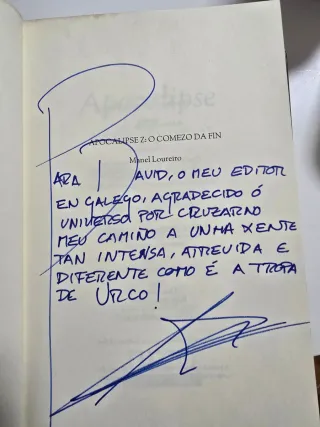 Apocalipse
APOCALIPSE Z: O COMEZO DA FIN
Manel Loureiro
PARA DAVID, O MEU EDITOR
EN GALEGO, AGRADECIDO Ó
UNIVERSO POR CRUZARNO
MEU CAMIÑO A UNHA XENTE
TAN INTENSA, ATREVIDA E
DIFERENTE COMO É A TROPA
DE URCO!